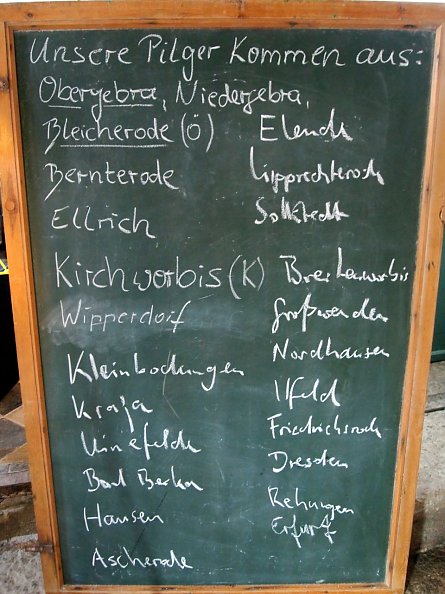 Unsere Pilger kommen aus:
Obergebra, Niedergebra,
Bleicherode (Ö)
Bernterode
Ellrich
Kirchworbis (K)
Wipperdorf
Kleinbodungen
Kraja
Bad Berka
Hausen
Ascherode
Elende
Lipprechterode
Sollstedt
Breitenworbis
Großwenden
Nordhausen
Ilfeld
Friedrichsroda
Dresden
Rehungen
Erfurt